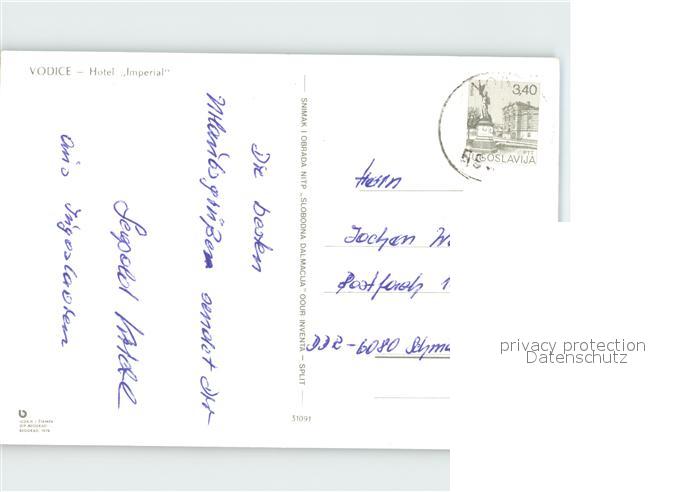 VODICE – Hotel „Imperial"
Die besten
Urlaubsgrüßen sendet Dir
Leopold
aus Jugoslawien
SNIMAK I OBRADA NITP „SLOBODNA DALMACIJA" OOUR INVENTA – SPLIT
3,40
PTT
JUGOSLAVIJA
Herrn
Jochen W
Postfach 1
DDR-6080 Schma
31091
privacy protection
Datenschutz